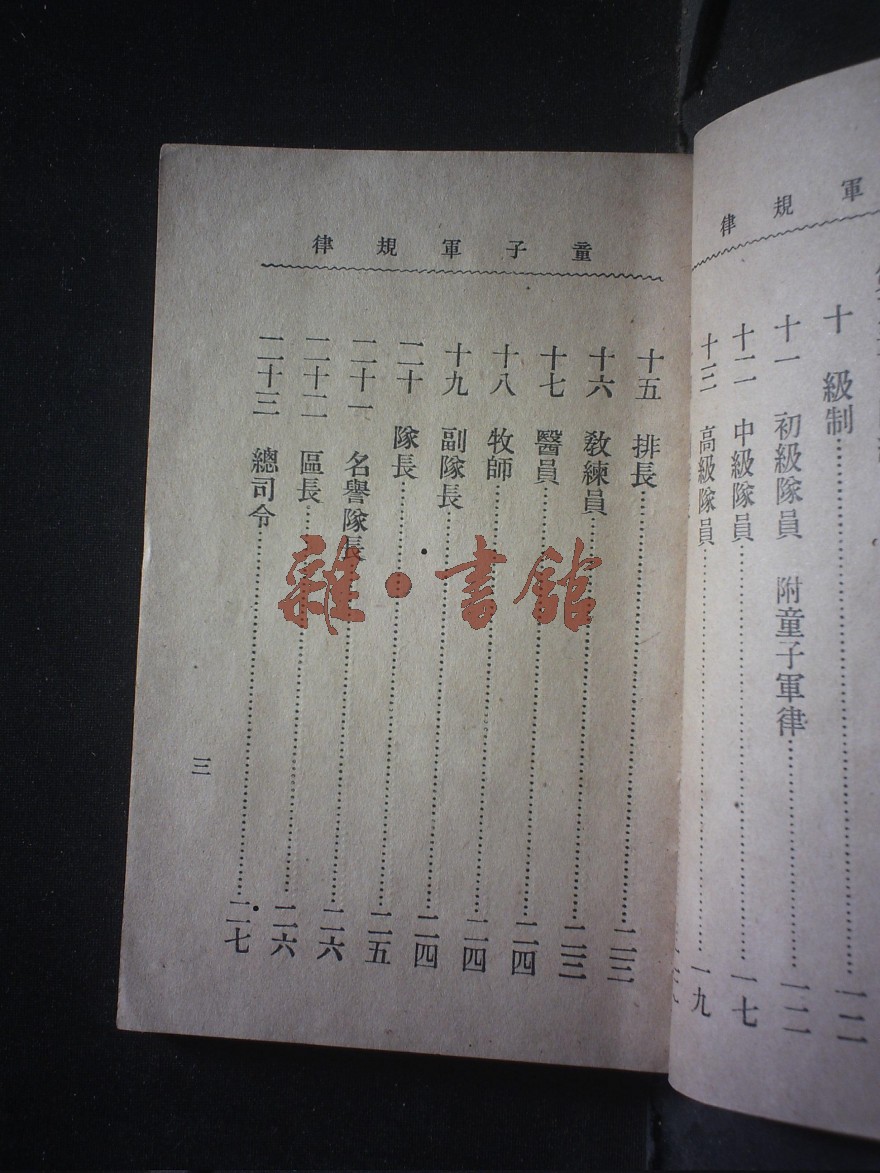 軍規律
十 級制……一二
十一 初級隊員 附童子軍律……一二
十二 中級隊員……一七
十三 高級隊員……一九
童子軍規律
十五 排長……二三
十六 教練員……二三
十七 醫員……二四
十八 牧師……二四
十九 副隊長……二四
二十 隊長……二五
二十一 名譽隊長……二六
二十二 區長……二六
二十三 總司令……二七
三
雜·書館